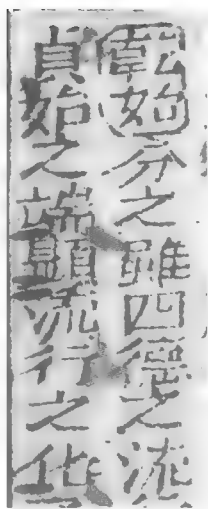 乾始分之雖四德之流
貞始之端顯流行之化